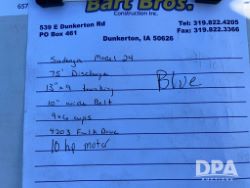 657
Bart Bros.
Construction Inc.
539 E Dunkerton Rd
PO Box 461
Tel: 319.822.4205
Fax: 319.822.3366
Dunkerton, IA 50626
Model 24
75' Discharge
Blue
13" x 9
10" wide Belt
9x6 cups
10 hp motor
DPA